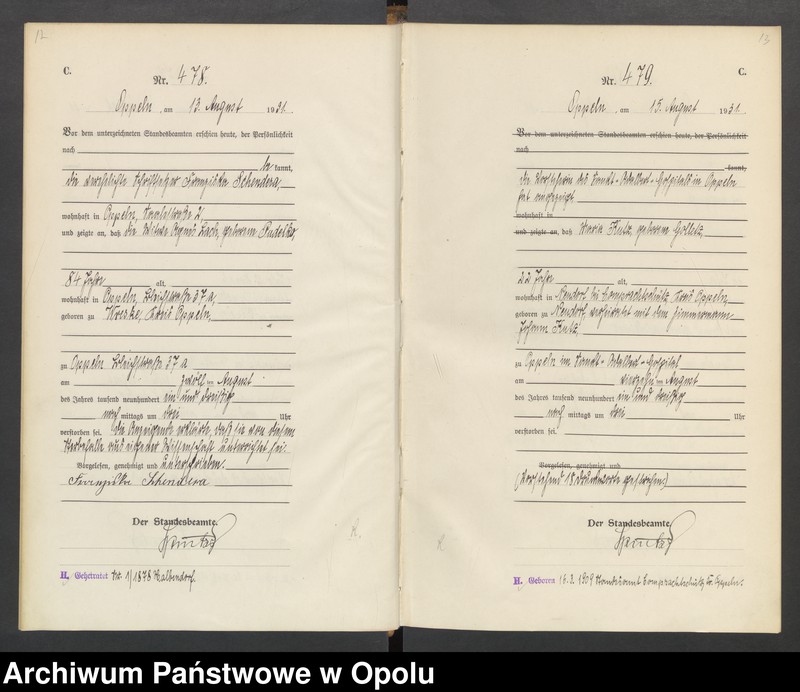 12
C.
Nr. 478.
Oppeln, am 13. August 1931.
Vor dem unterzeichneten Standesbeamten erschien heute, der Persönlichkeit
nach
be kannt,
die verehelichte Schriftsetzer Franziska Schendera,
wohnhaft in Oppeln, 2
und zeigte an, daß die Witwe Agnes geborene
84 Jahre alt,
wohnhaft in Oppeln, Bleichstraße 37a
geboren zu Kreis Oppeln,
zu Oppeln Bleichstraße 37a
am zwölften August
des Jahres tausend neunhundert ein und dreißig
nach mittags um drei Uhr
verstorben sei. Die Anzeigende erklärte, daß sie von diesem
Sterbefalle aus eigener Wissenschaft unterrichtet sei.
Vorgelesen, genehmigt und unterschrieben.
Franziska Schendera
Der Standesbeamte.
H. Geheiratet Nr. 1/1878 Halbendorf.
13
C.
Nr. 479.
Oppeln, am 15. August 1931.
Vor dem unterzeichneten Standesbeamten erschien heute, der Persönlichkeit
nach
kannt,
die Vorsteherin des Sankt-Adalbert-Hospitals in Oppeln
hat angezeigt
wohnhaft in
und zeigte an, daß Maria Kutz, geborene Golletz
22 Jahre alt,
wohnhaft in Neudorf bei Comprachtschütz, Kreis Oppeln,
geboren zu Neudorf, verheiratet mit dem Zimmermann
Johann Kutz,
zu Oppeln im Sankt-Adalbert-Hospital
am vierzehnten August
des Jahres tausend neunhundert ein und dreißig
nach mittags um drei Uhr
verstorben sei.
Vorgelesen, genehmigt und
(Vorstehend 18 Druckworte gestrichen)
Der Standesbeamte.
H. Geboren 1909 Standesamt Comprachtschütz, Kr. Oppeln.
Archiwum Państwowe w Opolu